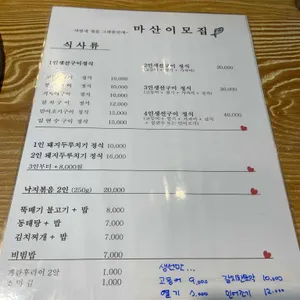 마산이모집
식사류
1인생선구이정식
정식 10,000
15,000
구이 정식 15,000
갈치구이 정식 15,000
민어조기구이 정식 15,000
임연수구이 정식 15,000
2인생선구이 정식 20,000
3인생선구이 정식 30,000
4인생선구이 정식 40,000
1인 돼지두루치기 정식 10,000
2인 돼지두루치기 정식 16,000
3인부터 + 8,000원
낙지볶음 2인 (250g) 20,000
뚝배기 불고기 + 밥 8,000
동태탕 + 밥 7,000
김치찌개 + 밥 7,000
비빔밥 7,000
계란후라이 2알 1,000
1,000
생선만
고등어 9,000
열기 5,000
10,000
민어조기 12,000